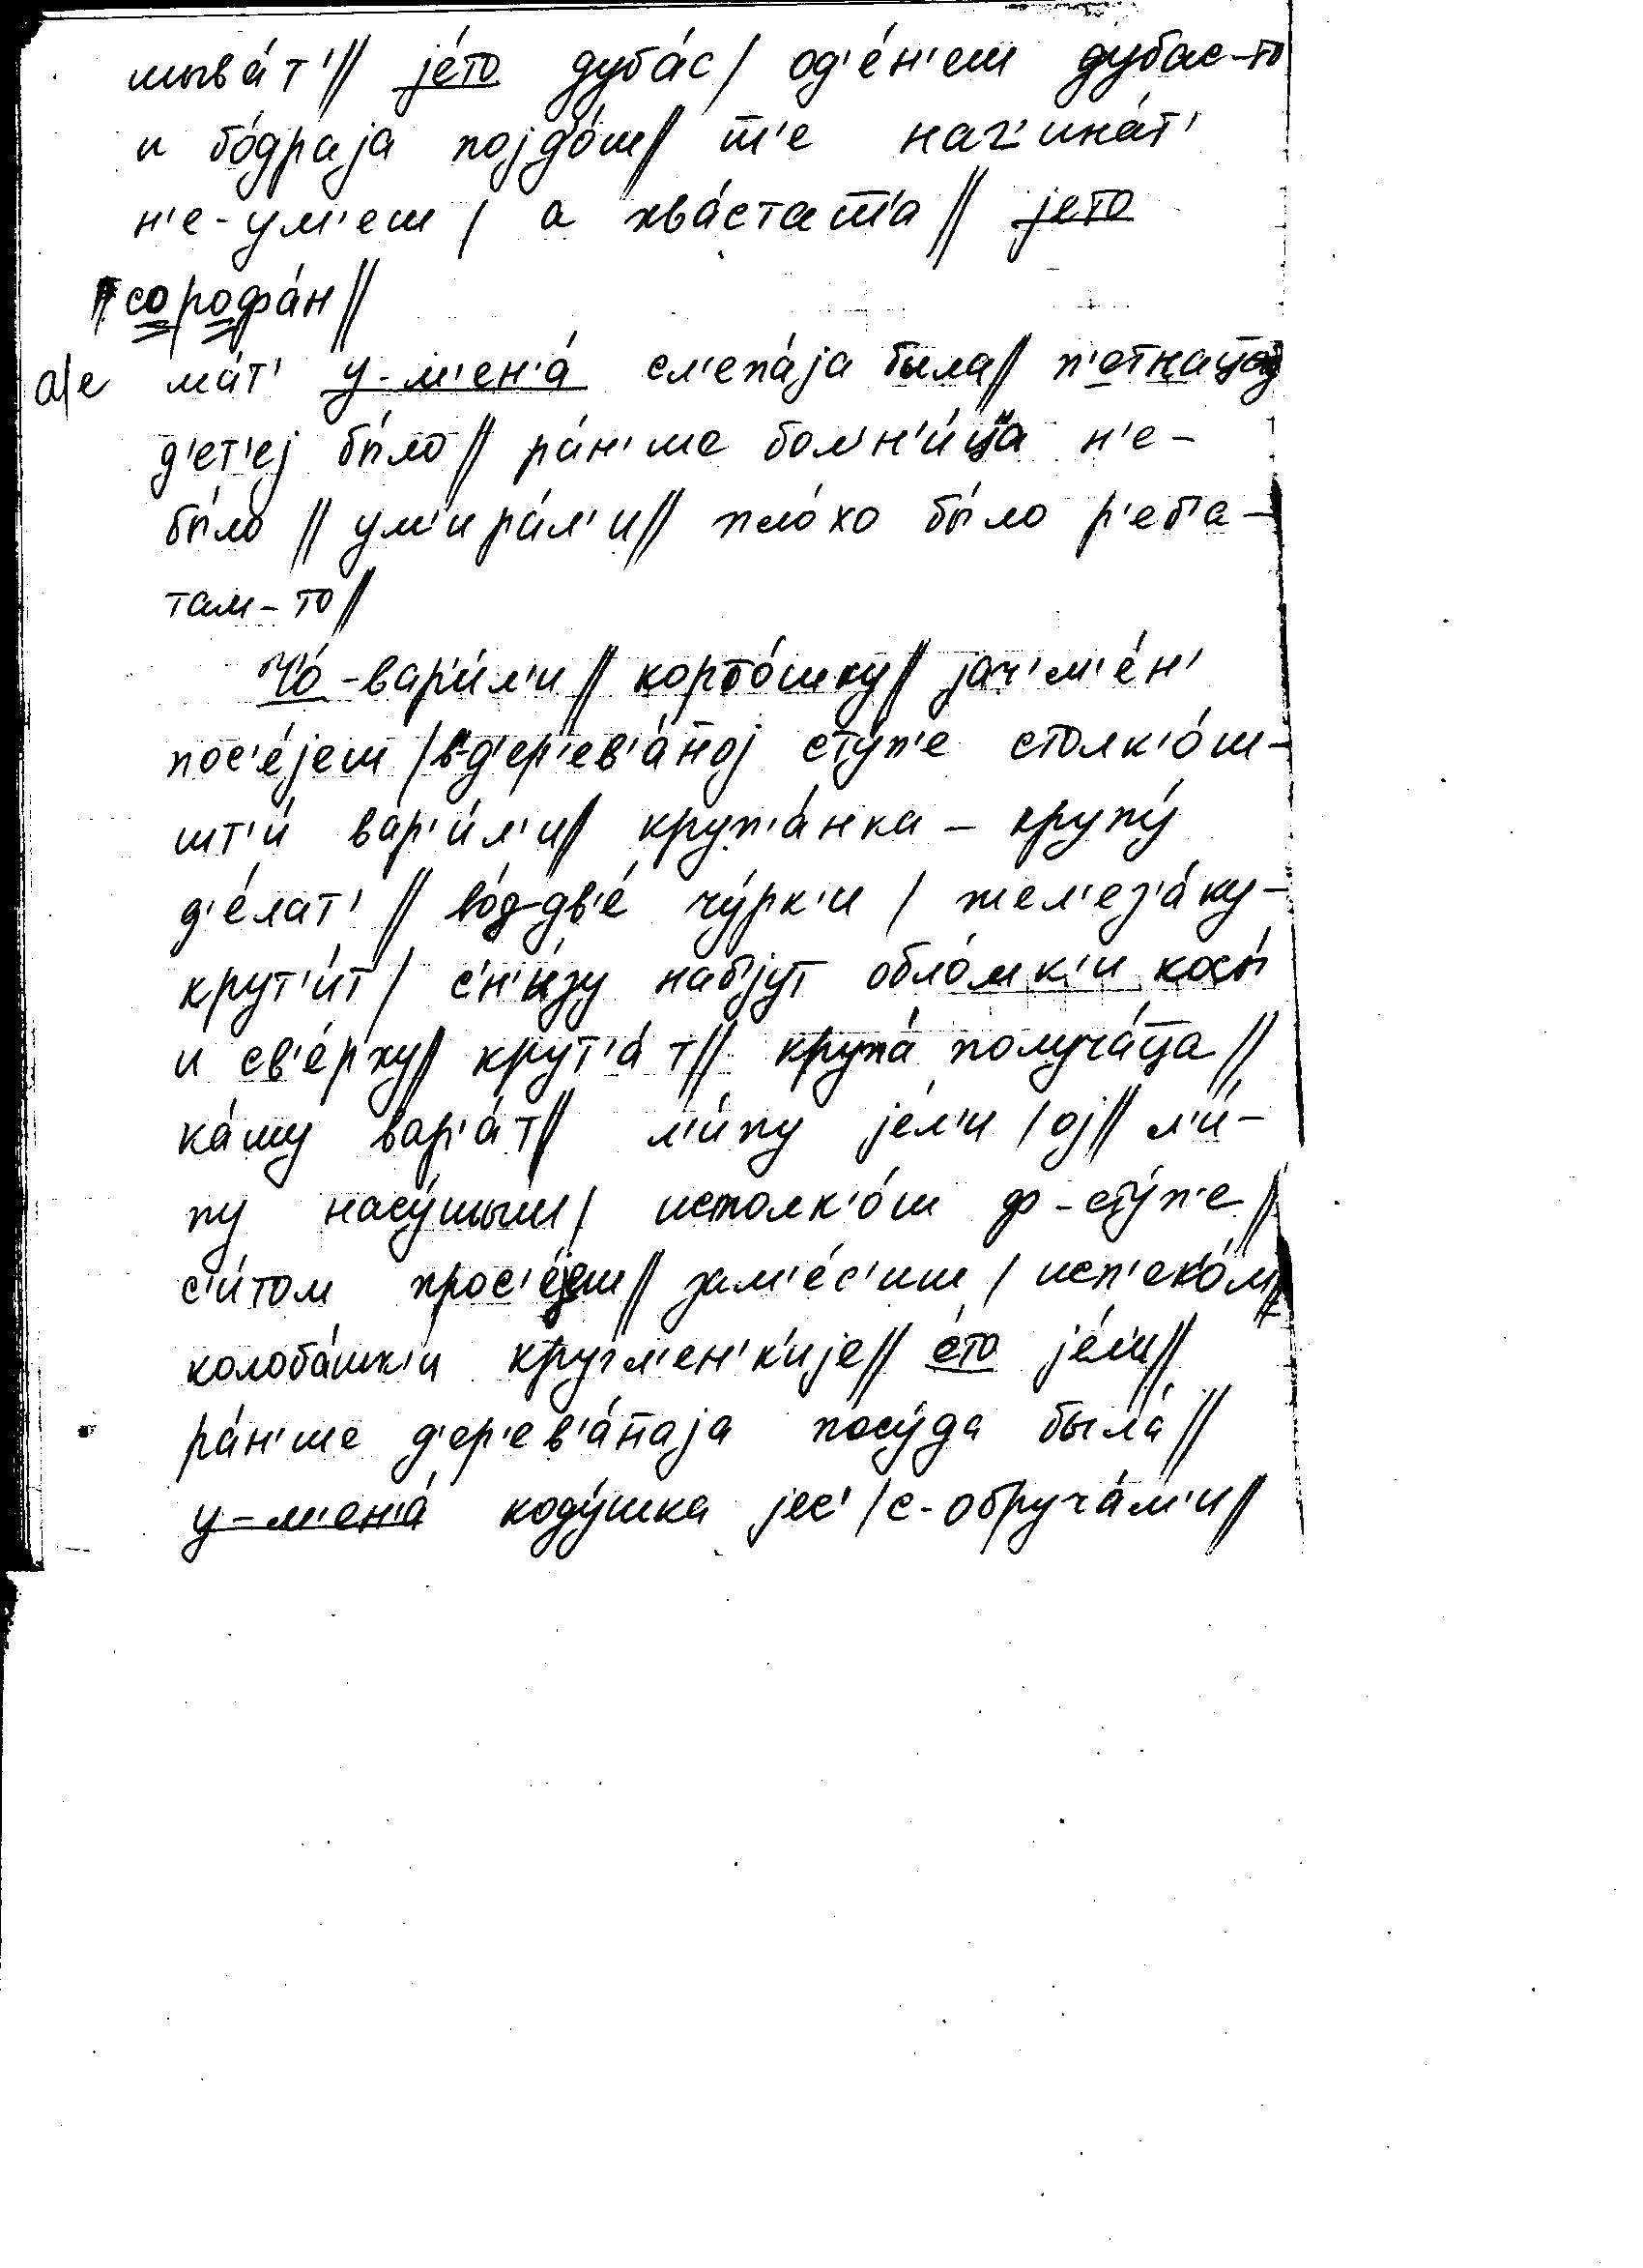 шыва́т'// је́то дуба́с/ од'е́н'еш дубас-то
и бо́драја појдо́ш// т'е нач'ина́т'
н'е-ум'еш / а хва́стат'а // јето
сорофа́н//
а/е ма́т' у-м'ен'а́ сл'епа́ја была//
д'ет'еј бы́ло// ра́н'ше бол'н'и́ца н'е-
бы́ло // ум'ира́л'и// пло́хо бы́ло р'еб'а-
там-то//
Чо́-вар'и́л'и// корто́шку// јач'м'е́н'
пос'е́јеш /в-д'ер'ев'а́н̄ој сту́п'е столк'о́ш-
шт'и́ вар'и́л'и// круп'а́нка - крупу́
д'е́лат' // во́д-дв'е́ чу́рк'и / жел'ез'а́ку-
крут'и́т / с'н'и́зу наб'јут обло́мк'и косы́
и св'е́рху// крут'а́т// крупа́ получа́ц̄а //
ка́шу вар'а́т// л'и́пу је́л'и /ој// л'и́-
пу насу́шыш/ истолк'о́ш ф-сту́п'е//
с'и́том прос'е́јеш// зам'е́с'иш / исп'еко́м//
колоба́шк'и кру́гл'ен'к'ије// е́то је́л'и//
ра́н'ше д'ер'ев'а́н̄аја посу́да была́//
у-м'ен'а́ коду́шка јес' /с-обруча́м'и//